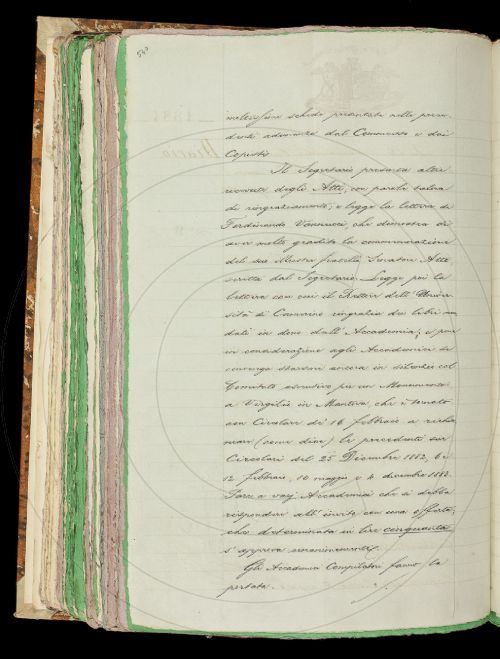 540
schede presentate nelle prece-
denti adunanze dal Commesso e dai
Copisti
Il Segretario presenta altre
ricevute degli Atti, con parole
di ringraziamento; e legge la lettera di
Ferdinando Vannucci, che dimostra di
aver molto gradita la commemorazione
del suo illustre fratello Senatore Atto
scritta dal Segretario. Legge poi la
lettera con cui il Rettore dell' Univer-
sità di Camerino ringrazia dei libri man
dati in dono dall' Accademia; e pone
in considerazione agli Accademici se
convenga stare ancora in silenzio col
Comitato esecutivo per un Monumento
a Virgilio in Mantova che è tornato
con Circolare de' 16 febbraio a richia
mare (come dice) le precedenti sue
Circolari del 25 Dicembre 1882, 6 e
12 febbraio, 10 maggio e 4 dicembre 1882.
Pare a varj Accademici che si debba
rispondere all' invito con una offerta,
che determinata in lire cinquanta
s' approva unanimemente.
Gli Accademici Compilatori fanno la
portata.